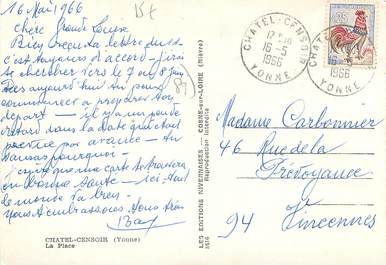 16 Mai 1966
Chère Grande Louise
Bien reçu ta lettre
c'est toujours d'accord - j'irai
te chercher vers le 7 ou 8 juin
Dès aujourd'hui tu peux
commencer à préparer ton
départ - il y a un peu de
retard sur la date qui était
prévue par avance -
pourquoi -
J'espère que ma carte te trouvera
en bonne santé - ici tout
le monde va bien -
Nous t'embrassons tous trois
CHATEL-CENSOIR (Yonne)
La Place
LES EDITIONS NIVERNAISES - COSNE-sur-LOIRE (Nièvre)
Reproduction interdite
CHATEL-CENSOIR
16-5
1966
YONNE
CHATEL-CENSOIR
16-5
1966
YONNE
89
Madame Carbonnier
46 Rue de la
Prévoyance
Vincennes
94